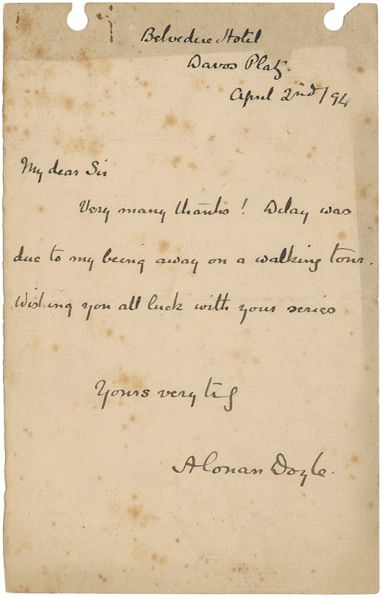 Belvedere Hotel
Davos Platz.
April 2nd/94
My dear Sir
Very many thanks! Delay was
due to my being away on a walking tour.
Wishing you all luck with your series
Yours very try
A Conan Doyle.